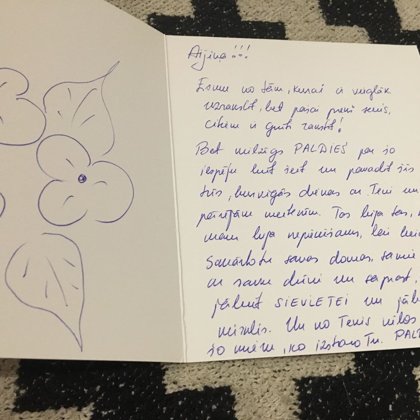 Aijiņa!!!
Esmu no tām, kurai ir vieglāk
uzrakstīt, bet pasai prieš sevis,
citiem ir grūti rakstīt!
Bet milzīgs PALDIES par šo
iespēju būt šeit un pavadīt šīs
trīs, burvīgās dienas ar Tevi un
pārējām meitenēm. Tas bija tas,
man bija nepieciešams, lai
Sakārtotu savas domas,
ar savu dzīvi un saprast,
jābūt SIEVIETEI un
mīmlis. Un no Tevis
šo mēm, ko izstaro Tu. PALD